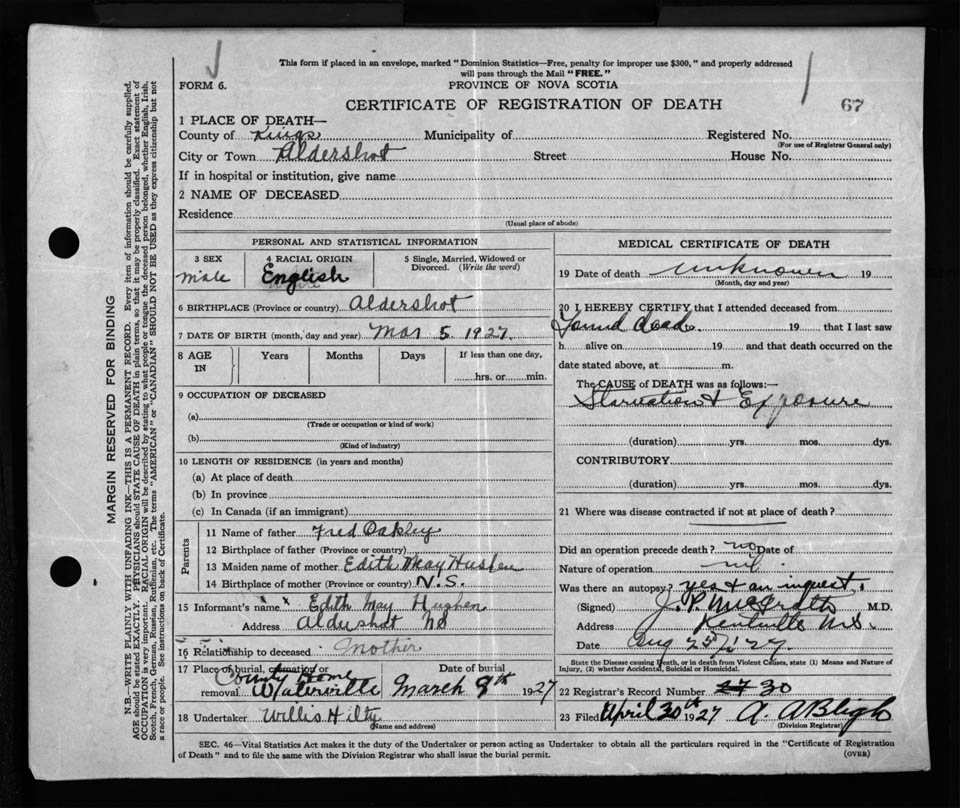 This form if placed in an envelope, marked "Dominion Statistics—Free, penalty for improper use $300," and properly addressed
will pass through the Mail "FREE."
FORM 6.
PROVINCE OF NOVA SCOTIA
CERTIFICATE OF REGISTRATION OF DEATH
67
MARGIN RESERVED FOR BINDING
N.B.—WRITE PLAINLY WITH UNFADING INK—THIS IS A PERMANENT RECORD. Every item of information should be carefully supplied.
AGE should be stated EXACTLY. PHYSICIANS should STATE CAUSE OF DEATH in plain terms, so that it may be properly classified. Exact statement of
OCCUPATION is very important. RACIAL ORIGIN will be described by stating to what people or tongue the deceased person belonged, whether English, Irish,
Scotch, French, German, Russian, Ruthenian, etc. The terms "AMERICAN" or "CANADIAN" SHOULD NOT BE USED as they express citizenship but not
a race or people. See instructions on back of Certificate.
1 PLACE OF DEATH—
County of Kings Municipality of Registered No.
(For use of Registrar General only)
City or Town Aldershot Street House No.
If in hospital or institution, give name
2 NAME OF DECEASED
Residence
(Usual place of abode)
PERSONAL AND STATISTICAL INFORMATION
3 SEX 4 RACIAL ORIGIN 5 Single, Married, Widowed or
Divorced. (Write the word)
male English
6 BIRTHPLACE (Province or country) Aldershot
7 DATE OF BIRTH (month, day and year) Mar 5 1927
8 AGE IN Years Months Days If less than one day,
hrs. or min.
9 OCCUPATION OF DECEASED
(a)
(Trade or occupation or kind of work)
(b)
(Kind of industry)
10 LENGTH OF RESIDENCE (in years and months)
(a) At place of death
(b) In province
(c) In Canada (if an immigrant)
Parents
11 Name of father Fred Oakley
12 Birthplace of father (Province or country)
13 Maiden name of mother Edith May
14 Birthplace of mother (Province or country) N.S.
15 Informant's name Edith May
Address Aldershot NS
16 Relationship to deceased Mother
17 Place of burial, cremation or
removal County Home Waterville
Date of burial
March 9th 1927
18 Undertaker Willis Hilty
(Name and address)
MEDICAL CERTIFICATE OF DEATH
19 Date of death unknown 19
(Month, day and year)
20 I HEREBY CERTIFY that I attended deceased from
found dead. 19 that I last saw
h alive on 19 and that death occurred on the
date stated above, at m.
The CAUSE of DEATH was as follows:—
Starvation & Exposure
(duration) yrs. mos. dys.
CONTRIBUTORY
(duration) yrs. mos. dys.
21 Where was disease contracted if not at place of death?
Did an operation precede death? no Date of
Nature of operation nil
Was there an autopsy? yes & an inquest.
(Signed) J. P. McGrath M.D.
Address Kentville N.S.
Date Aug 25/27
State the Disease causing Death, or in death from Violent Causes, state (1) Means and Nature of
Injury, (2) whether Accidental, Suicidal or Homicidal.
22 Registrar's Record Number 30
23 Filed April 30th 1927 A. A Bligh
(Division Registrar)
SEC. 46—Vital Statistics Act makes it the duty of the Undertaker or person acting as Undertaker to obtain all the particulars required in the "Certificate of Registration
of Death" and to file the same with the Division Registrar who shall issue the burial permit.
(OVER)